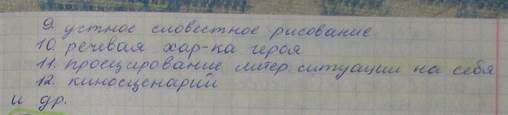 9. устное словестное рисование
10. речевая хар-ка героя
11. проецирование литер. ситуации на себя
12. киносценарий
и др.